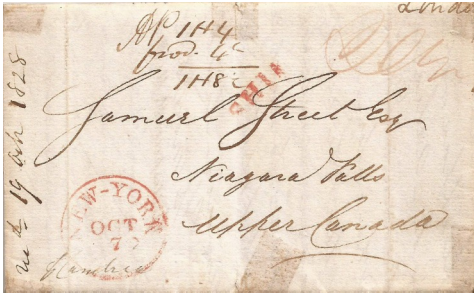 London
1H4
prov. 4
1H8
SHIP
Samuel Street Esq
Niagara Falls
Upper Canada
NEW-YORK
OCT
7
19 Oct 1828